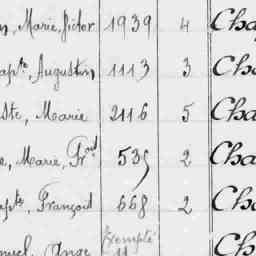 n, Marie, Victor 1939 4 Cha
apte, Augustin 1113 3 Cha
Ste, Marie 2116 5 Cha
e, Marie, Frois 535 2 Cha
apte François 668 2 Cha
nuel, Ange Exempté Ch